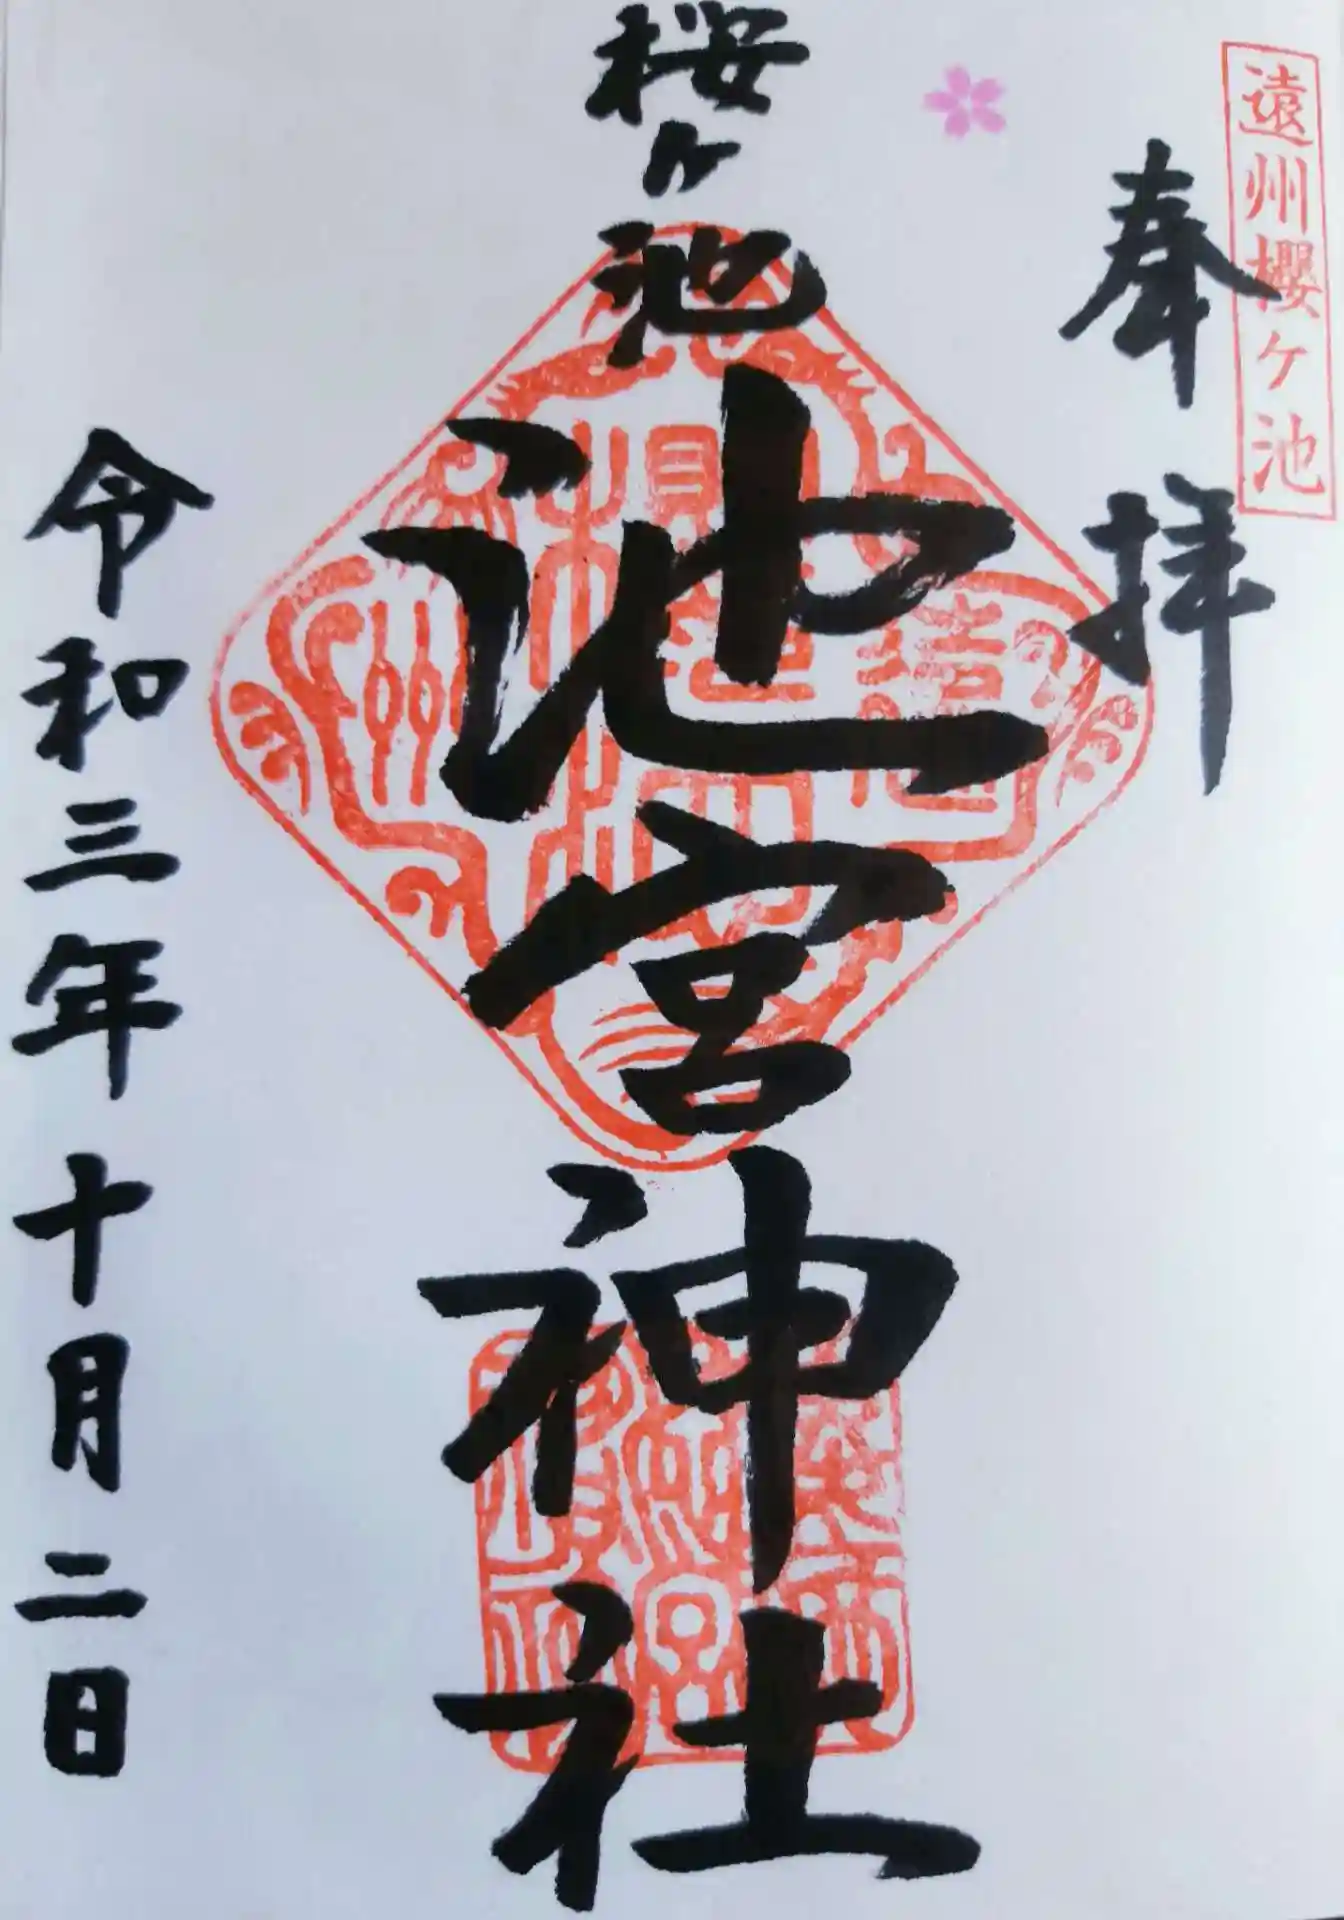 遠州櫻ケ池
奉拝
桜ヶ池
池宮神社
令和三年十月二日